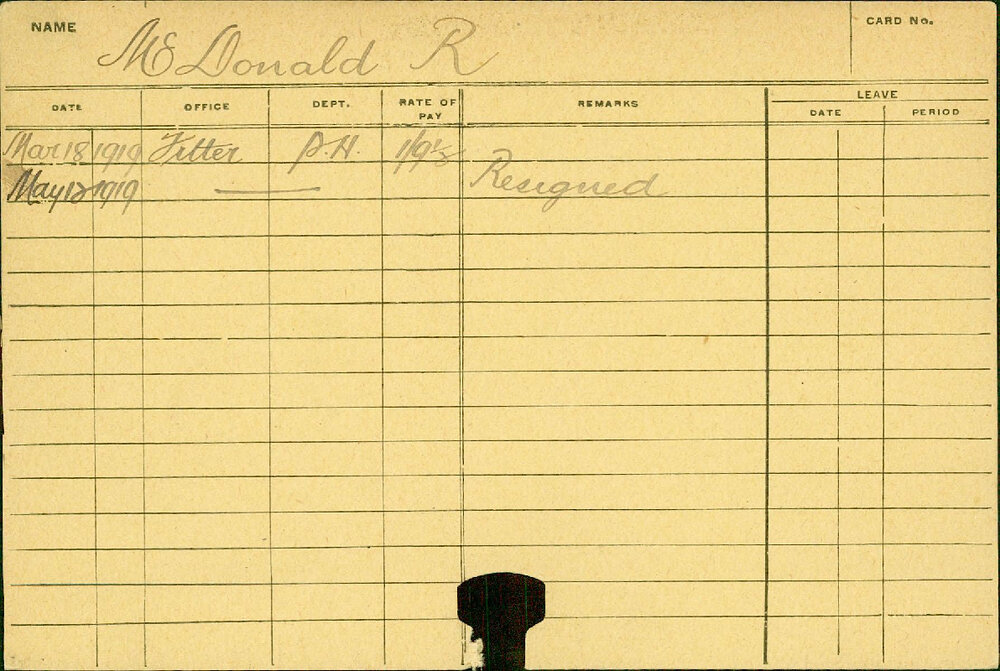 NAME McDonald R CARD No.
DATE OFFICE DEPT. RATE OF PAY REMARKS LEAVE
DATE PERIOD
Mar 18 1919 Fitter P.H. 1/9½
May 12 1919 Resigned